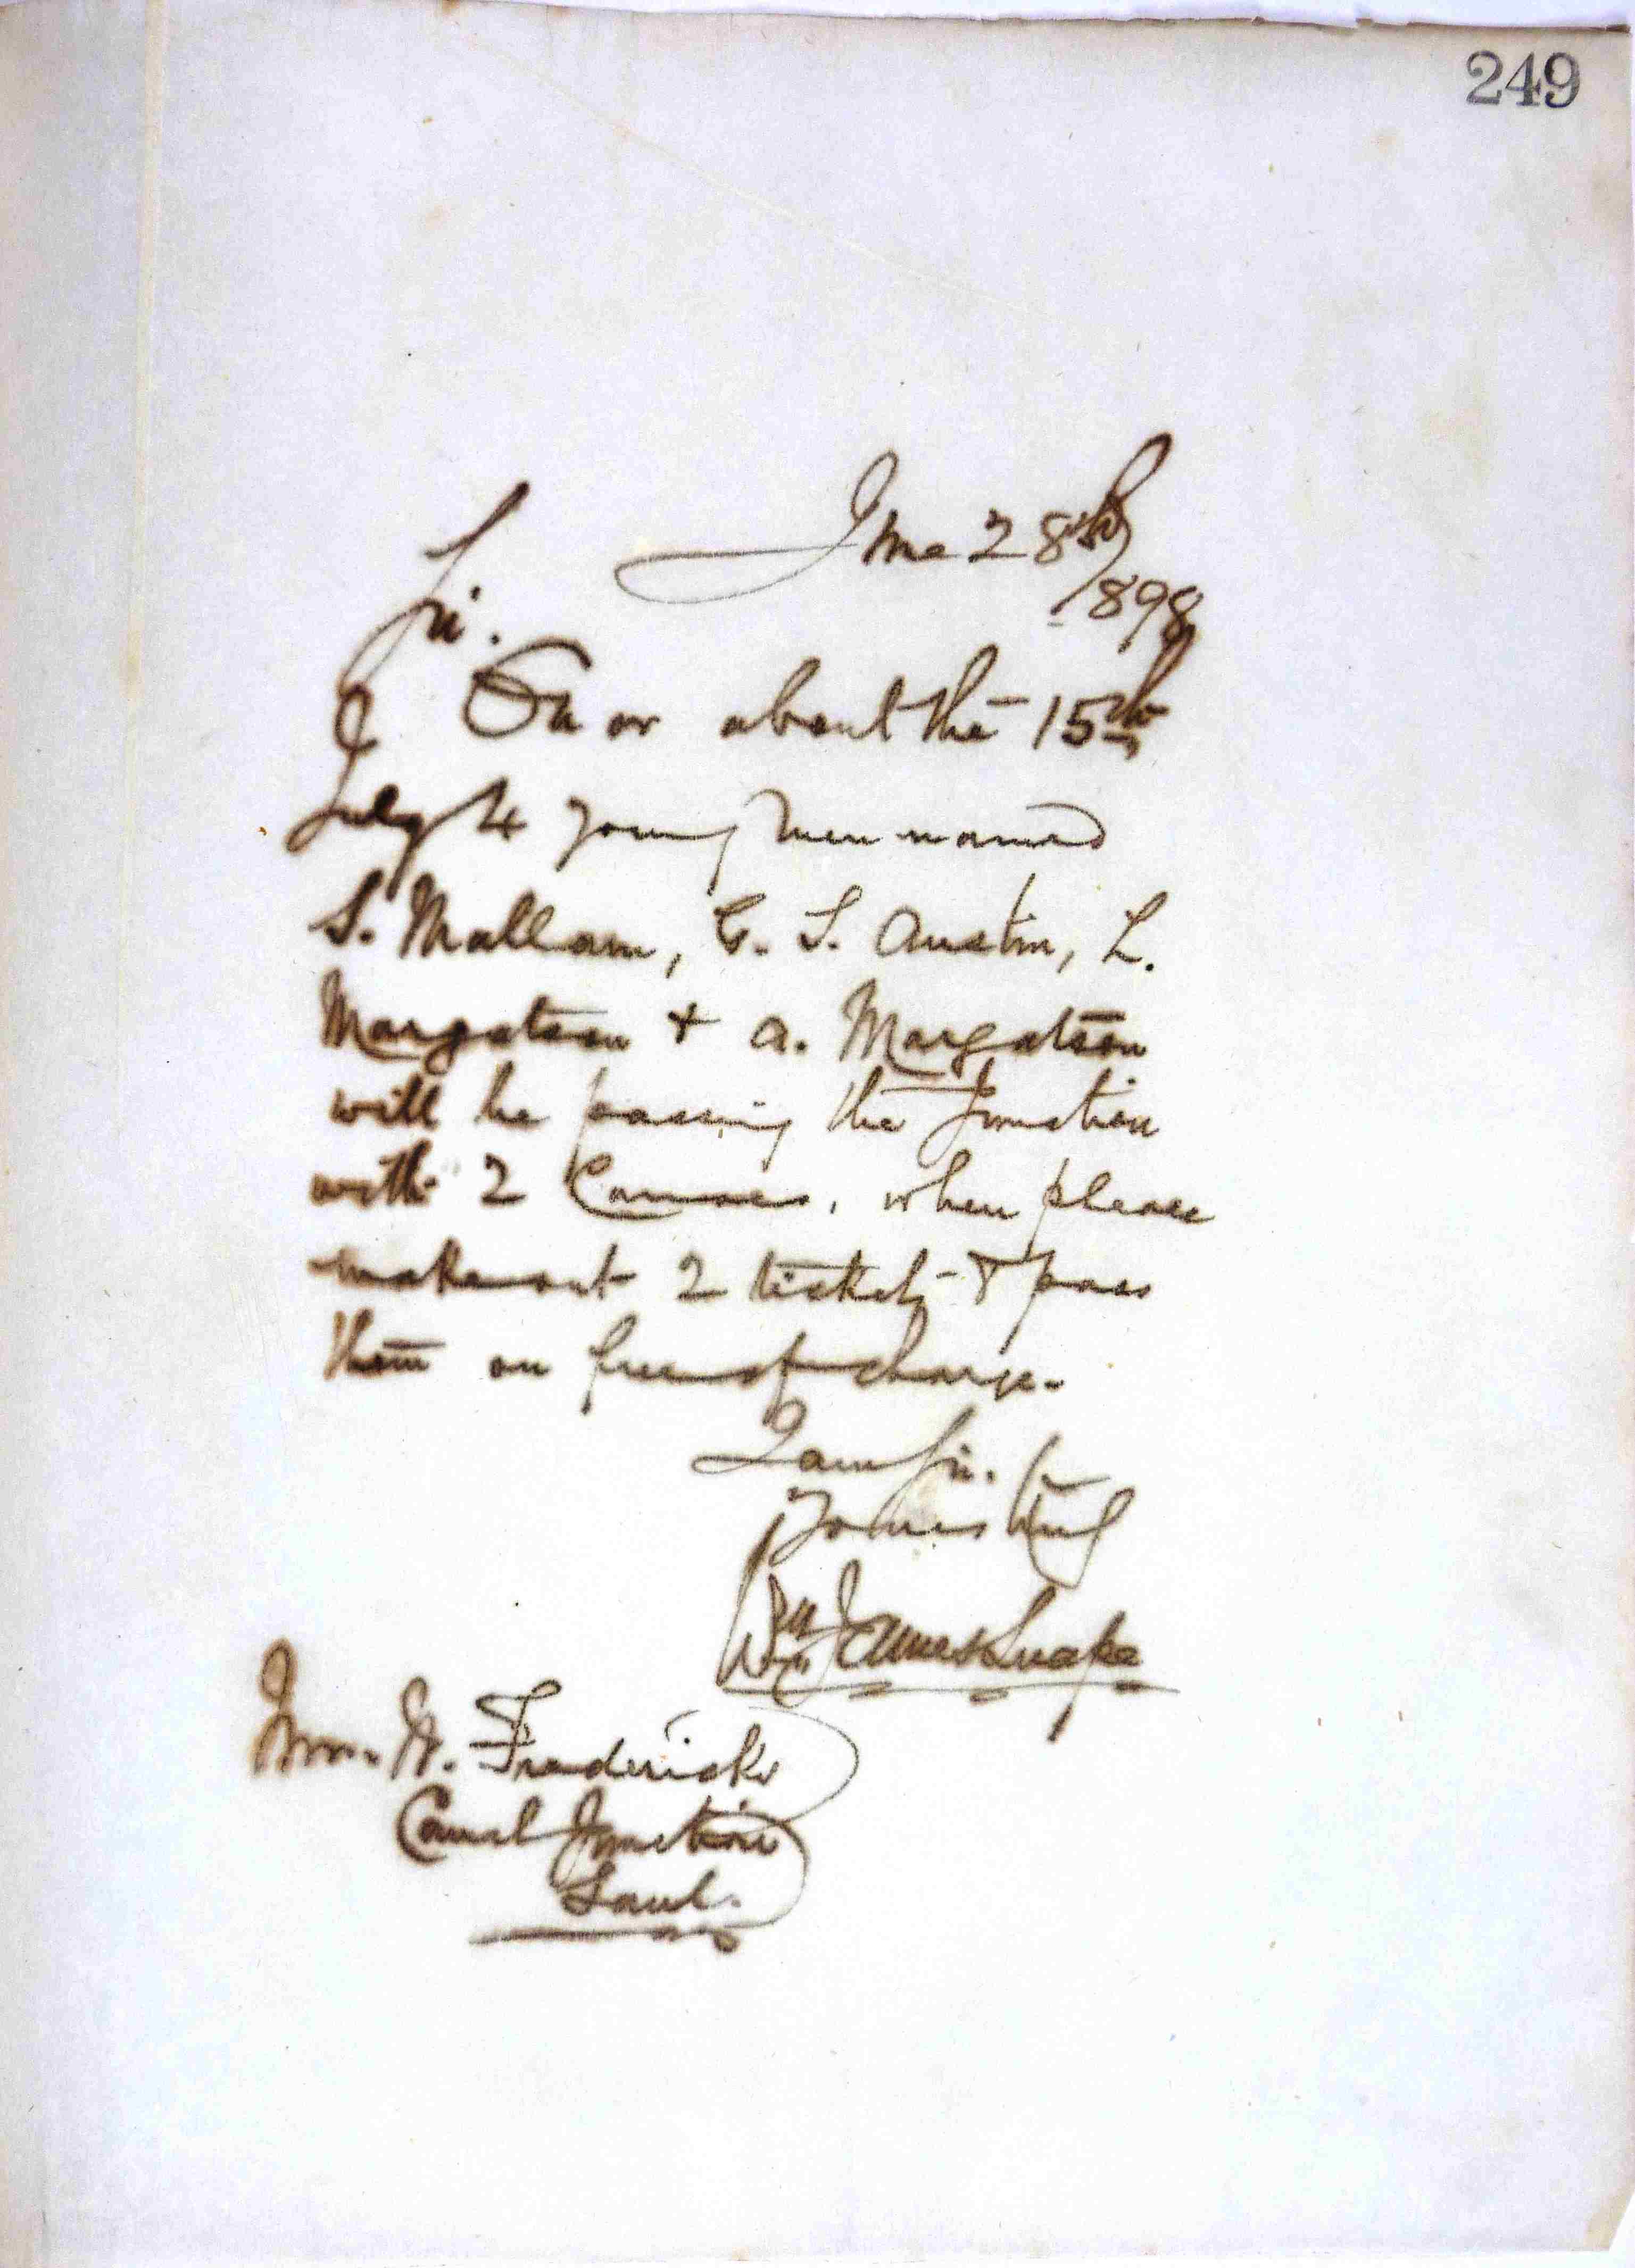 249
June 28th
1898
Sir.
On or about the 15th
July 4 young men named
S. Mallam, G. S. Austin, L.
Margetson + A. Margetson
will be passing the Junction
with 2 Canoes, when please
make out 2 tickets & pass
them on free of charge.
I am Sir.
Yours truly
Wm James Snape
W. Fredericks
Canal Junction
Saul.